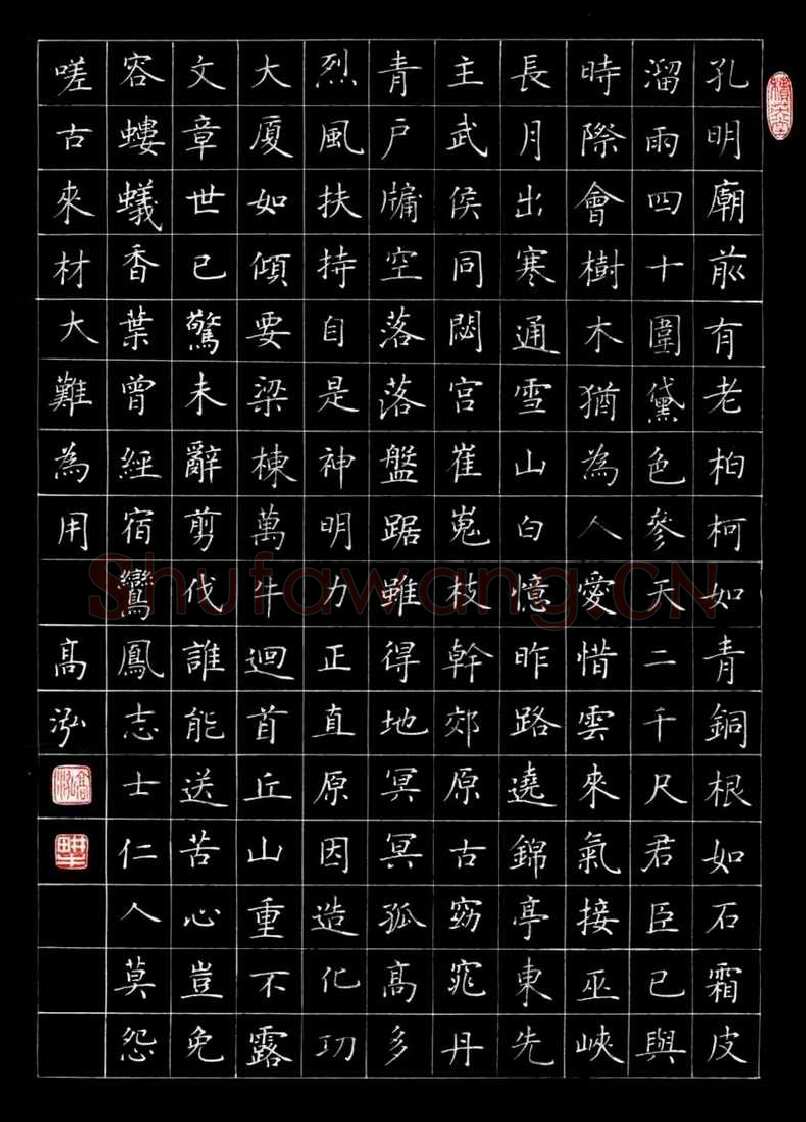 孔明廟前有老柏柯如青銅根如石霜皮
溜雨四十圍黛色參天二千尺君臣已與
時際會樹木猶為人愛惜雲來氣接巫峽
長月出寒通雪山白憶昨路遶錦亭東先
主武侯同閟宮崔嵬枝幹郊原古窈窕丹
青戶牖空落落盤踞雖得地冥冥孤髙多
烈風扶持自是神明力正直原因造化功
大厦如傾要梁棟萬牛迴首丘山重不露
文章世已驚未辭剪伐誰能送苦心豈免
容螻蟻香葉曾經宿鸞鳳志士仁人莫怨
嗟古來材大難為用
髙泓
Shufawang.CN